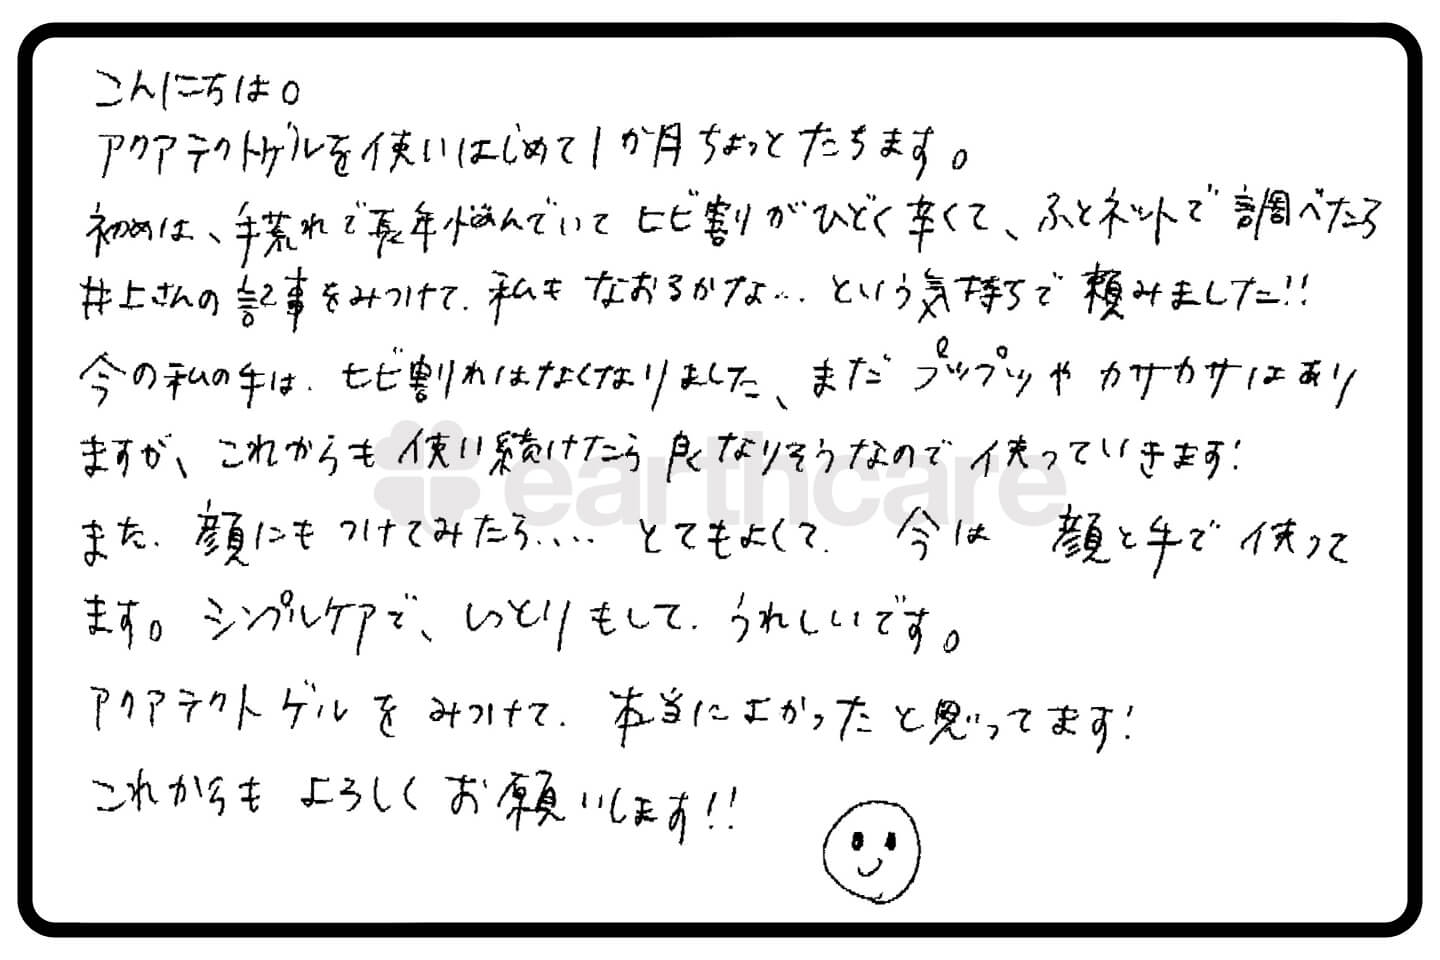 こんにちは。
アクアテクトゲルを使いはじめて1か月ちょっとたちます。
初めは、手荒れで長年悩んでいてヒビ割りがひどく辛くて、ふとネットで調べたら
井上さんの記事をみつけて、私もなおるかな…という気持ちで頼みました!!
今の私の手は、ヒビ割れはなくなりました、まだプップツやカサカサはあり
ますが、これからも使い続けたら良くなりそうなので使っていきます!
earthcare
また、顔にもつけてみたら‥‥とてもよくて、今は顔と手で使って
ます。シンプルケアで、しっとりもして、うれしいです。
アクアテクトゲルをみつけて、本当によかったと思ってます!
これからもよろしくお願いします!!